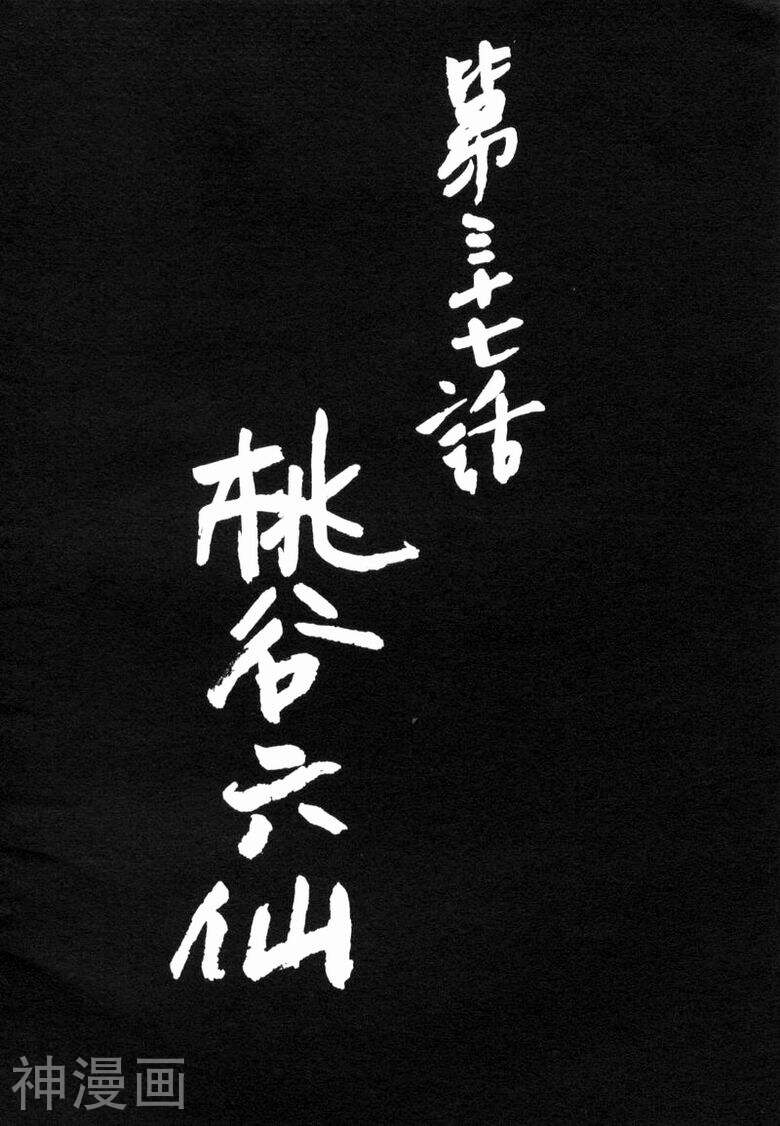 第三十七話
桃谷六仙
神漫画